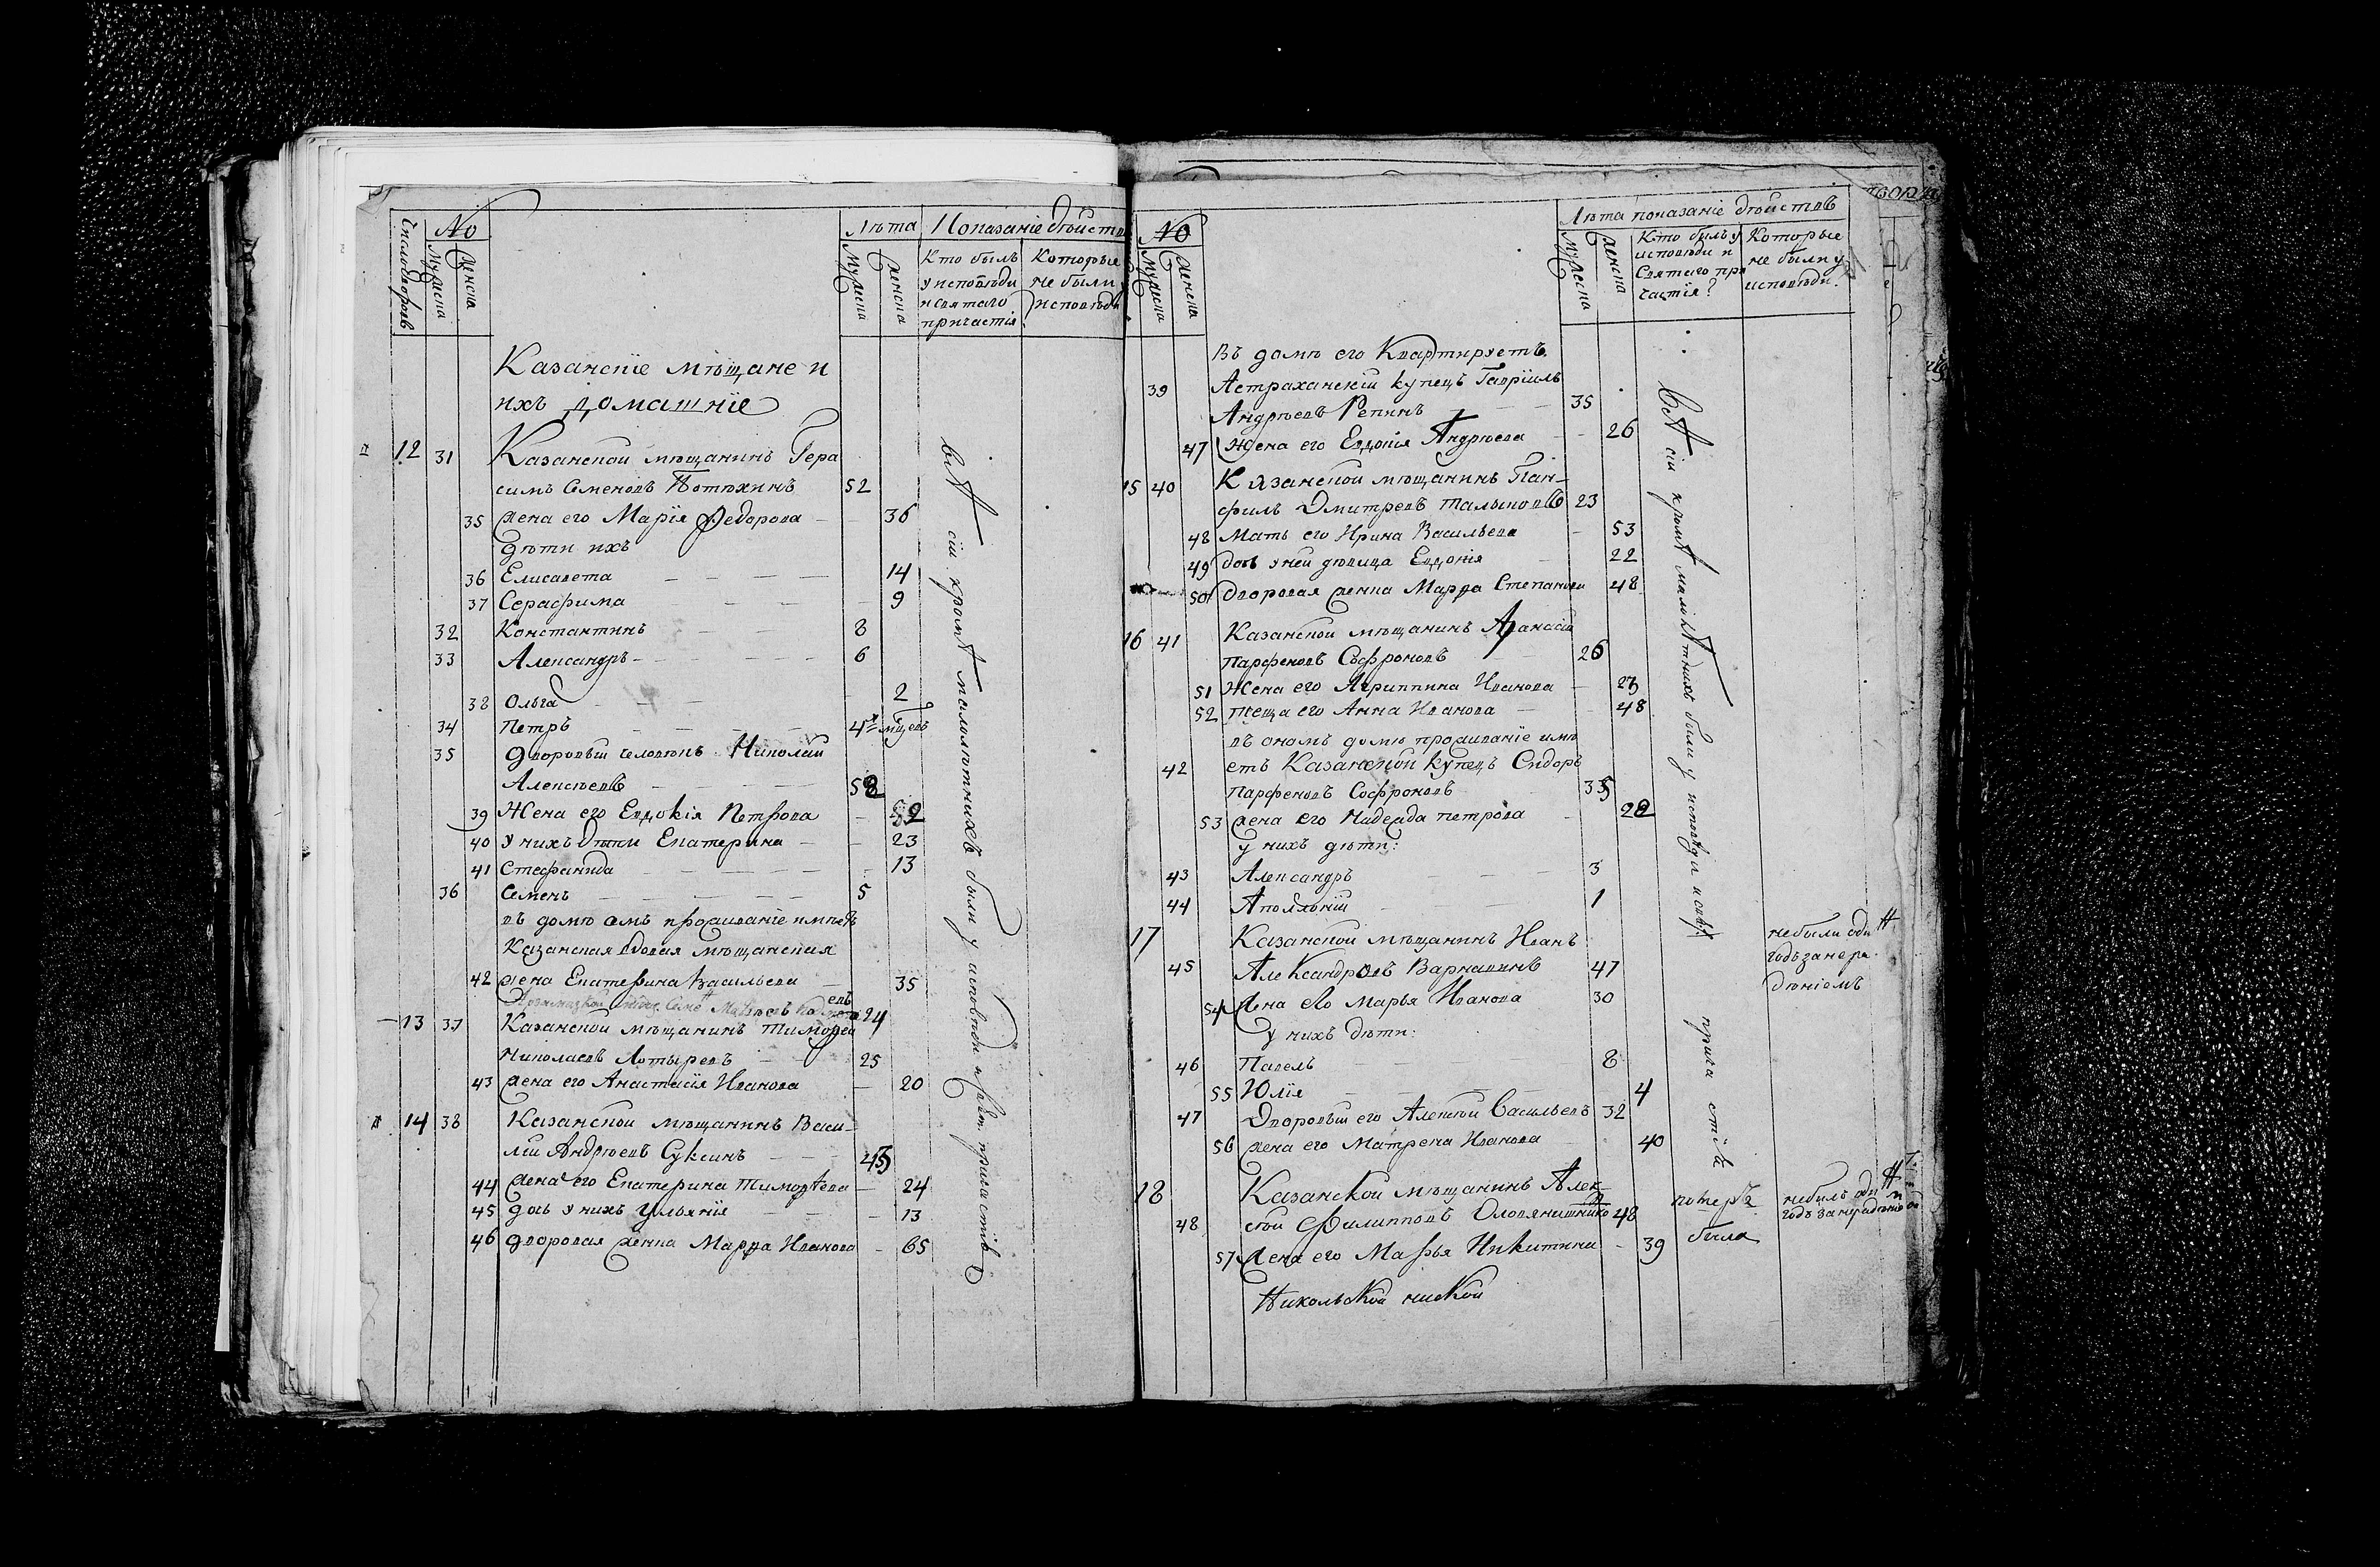 Число дворовъ
No
Мужеска
Женска
Лѣта
Мужеска
Женска
Показанiе дѣйств
Кто былъ
у исповѣди
и святаго
причастiя
Которые
не были
исповѣди
Казанскiе мѣщане и
ихъ домашнiе
12 31 Казанской мѣщанинъ Гера
симъ Семеновъ Потехинъ 52
35 жена его Марiя Федорова 36
дѣти ихъ
36 Елисавета 14
37 Серафима 9
32 Константинъ 8
33 Александръ 6
38 Ольга 2
34 Петръ
35 Дворовый человѣкъ Николай
Алексѣевъ 58
39 Жена его Евдокiя Петрова 52
40 У нихъ дѣти Екатерина 23
41 Стефанида 13
36 Семенъ 5
въ домѣ семъ проживанiе имѣетъ
Казанская вдовая мѣщанская
42 жена Екатерина Васильева 35
24
13 37 Казанской мѣщанинъ Тимофей
Николаевъ Лотыревъ 25
43 жена его Анастасiя Иванова 20
14 38 Казанской мѣщанинъ Васи
лiй Андрѣевъ Суксинъ 43
44 Жена его Екатерина Тимофѣева 24
45 дочь у нихъ Ульянiя 13
46 дворовая женка Марфа Иванова 65
всѣ сiи кромѣ малолѣтнихъ были у исповѣди и свят. причастiя
No
Мужеска
Женска
Лѣта показанiе дѣйствъ
Мужеска
Женска
Кто былъ у
исповѣди и
Святаго при
частiя?
Которые
не были у
исповѣди.
Въ домѣ его Квартируетъ
39 Астраханскiй купецъ Гаврiилъ
Андрѣевъ Репинъ 35
47 Жена его Евдокiя Андрѣева 26
15 40 Казанской мѣщанинъ Пан-
филъ Дмитревъ Талыновъ 23
48 Мать его Ирина Васильева 53
49 дочь у ней дѣвица Евдокiя 22
50 Дворовая женка Марфа Степанова 48
16 41 Казанской мѣщанинъ Афанасiй
Парфеновъ Софроновъ 26
51 Жена его Агриппина Иванова 23
52 теща его Анна Иванова 48
въ ономъ домѣ проживанiе имѣ
42 етъ Казанской купецъ Сидоръ
Парфеновъ Софроновъ 35
53 жена его Надежда петрова 28
у нихъ дѣти:
43 Александръ 3
44 Аполонiй 1
17 Казанской мѣщанинъ Иванъ
45 Александровъ Варнавинъ 47
54 Жена его Марья Иванова 30
У нихъ дѣти:
46 Павелъ 8
55 Юлiя 4
47 Дворовый его Алексѣй Васильевъ 32
56 жена его Матрена Иванова 40
18 Казанской мѣщанинъ Алек-
48 сѣй Филипповъ Оловянишнико 48
57 Жена его Марья Никитина 39
Никольской ниской
всѣ сiи кромѣ малолѣтнихъ были у исповѣди и свят причастiя
не были оди
годъ за нера
дѣнiемъ
была
не былъ оди
годъ за нерадѣнiе